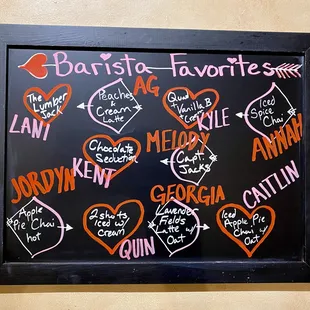 Barista Favorites
The
Lumber
Jack
LANI
Peaches
&
Cream
Latte
AG
Quad
Vanilla B
KYLE
Iced
Spice
Chai
ANNAH
Chocolate
Seduction
KENT
MELODY
Capt.
Jacks
JORDYN
GEORGIA
CAITLIN
Apple
Pie Chai
hot
2 shots
Iced w/
cream
QUIN
Lavender
Fields
Latte w/
Oat
Iced
Apple Pie
Chai w/
Oat